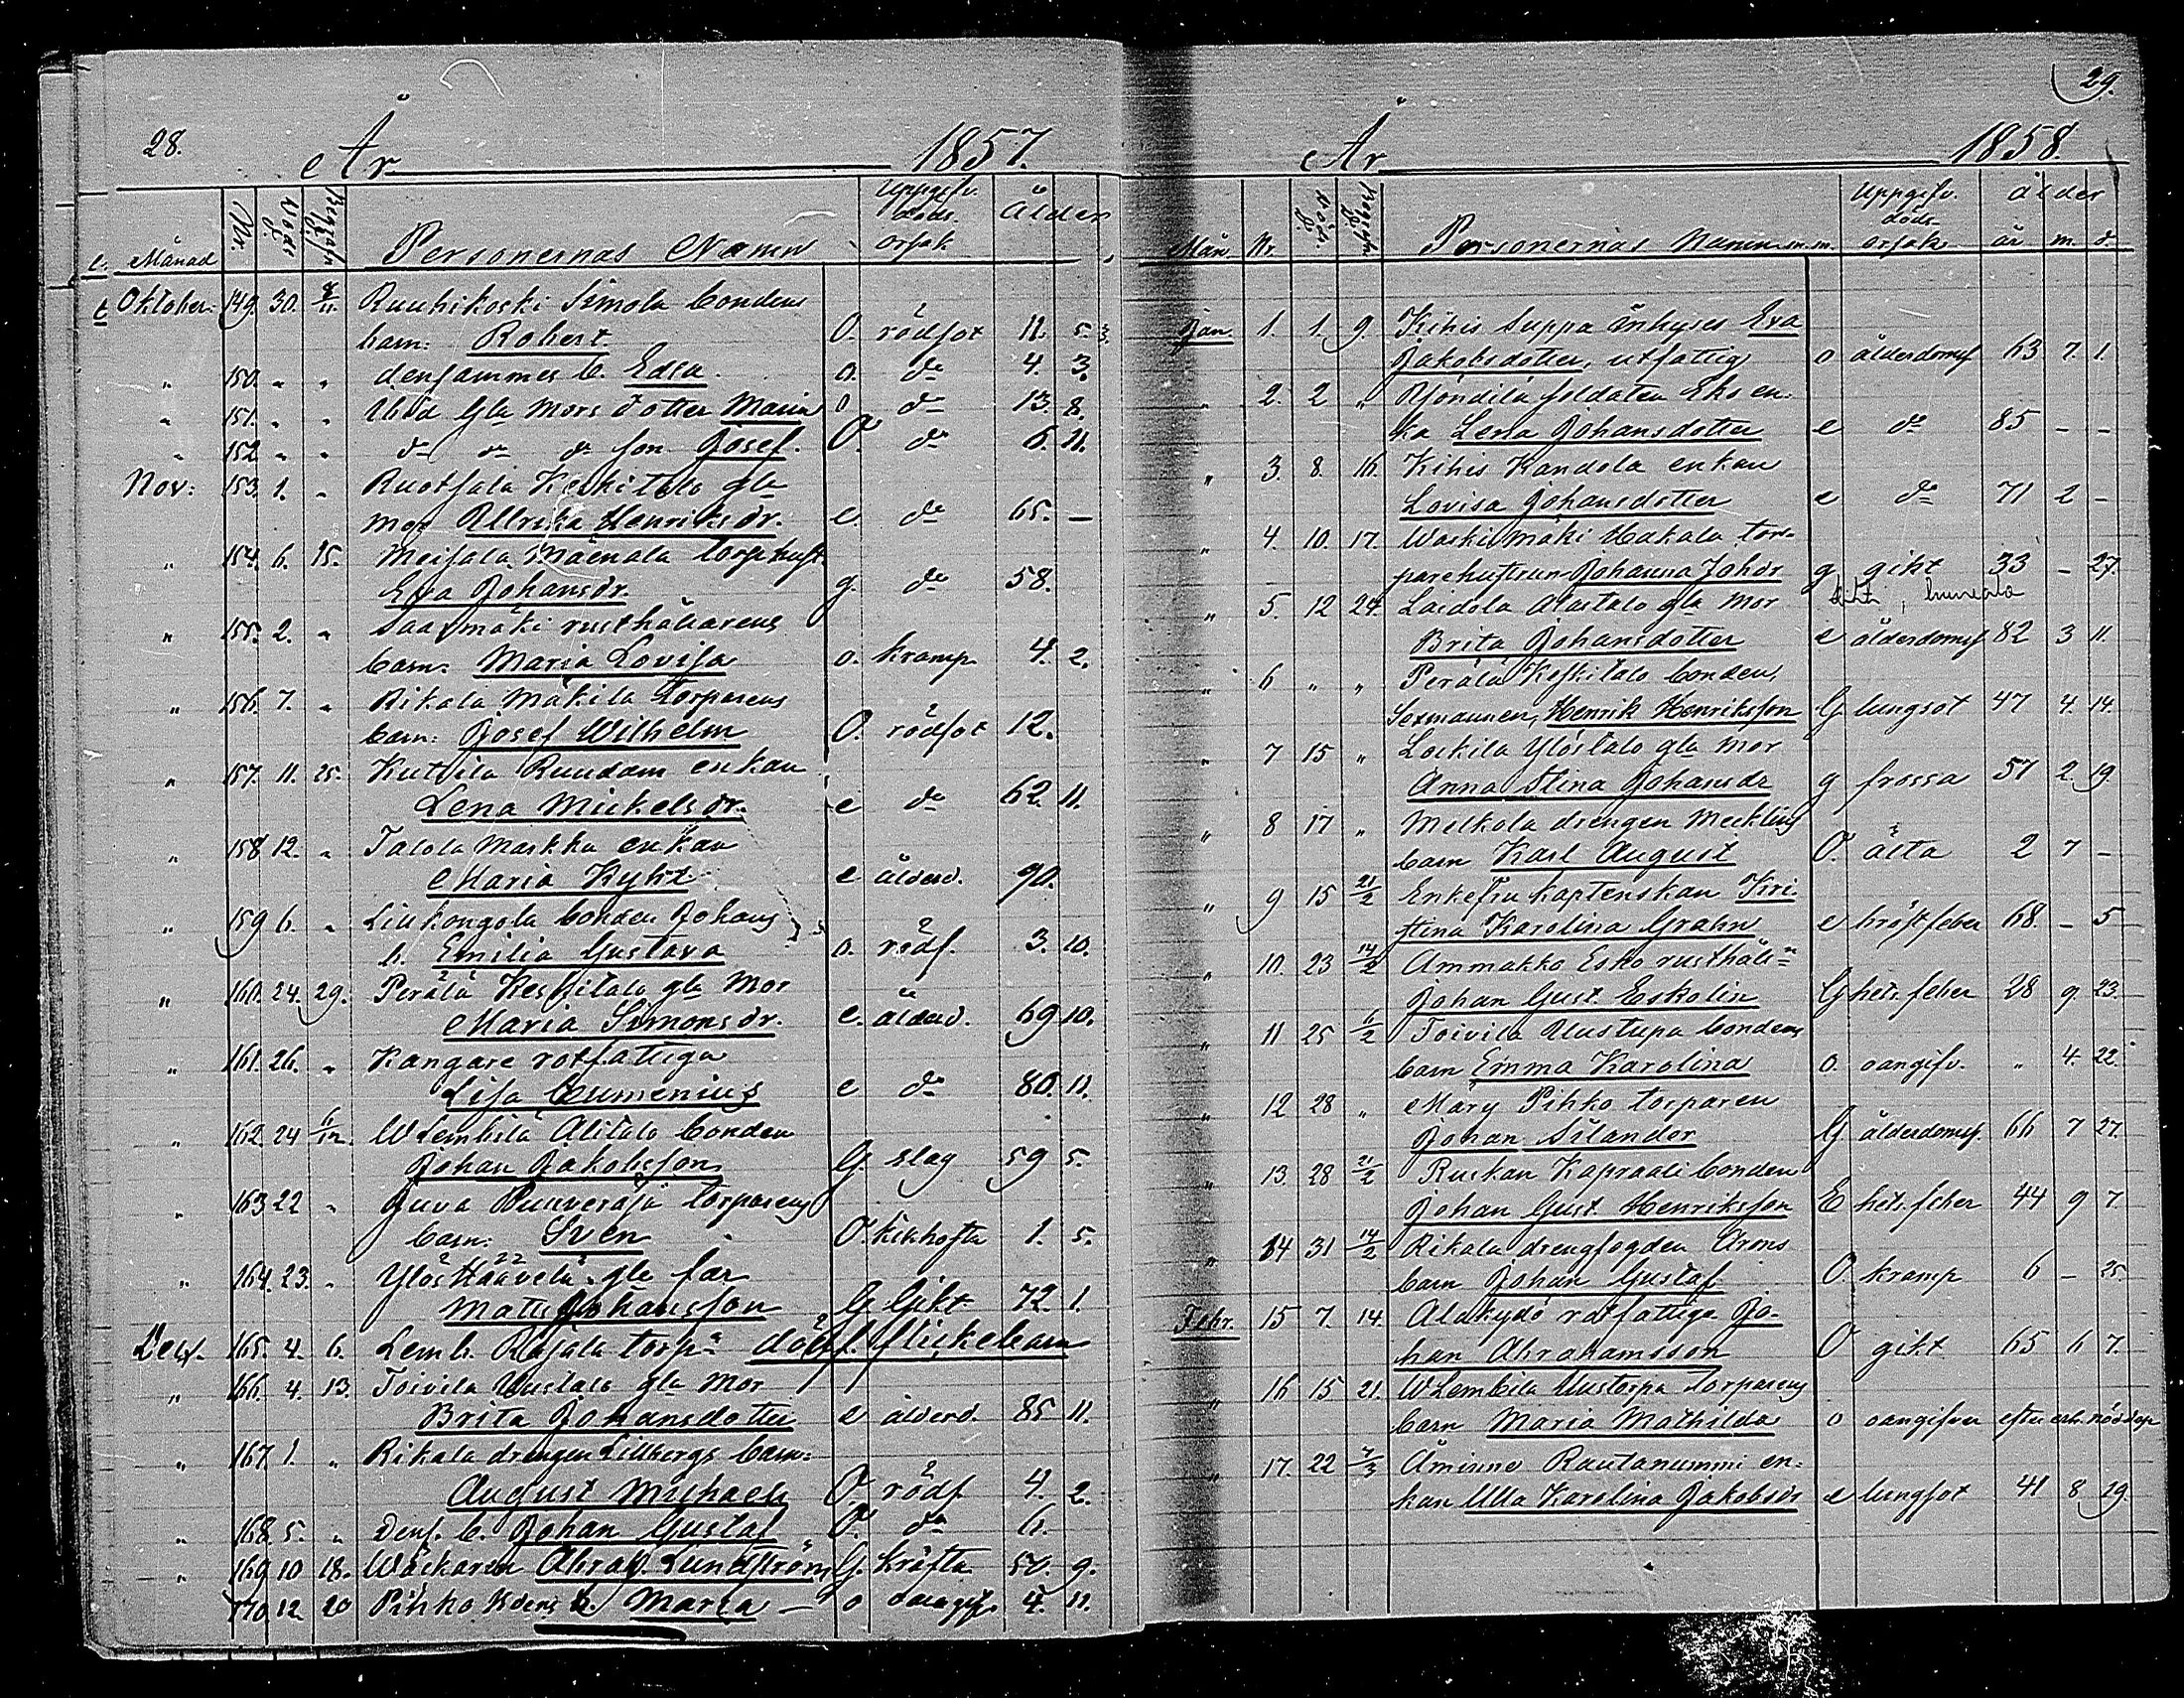 28.
År 1857.
Månad Nr. Död. Begrafn. Personernas Namn Uppgifv. döds orsak Ålder
Oktober: 149. 30. 8/11. Ruuhikoski Simola bondens
barn: Robert. O. rödsot 11. 5. 3.
" 150. " " densammes b. Edla. o. do 4 3.
" 151. " " Ibid Gla Mors dotter Maria o do 13. 8.
" 152 " " do do do son Josef. O. do 6. 11.
Nov: 153. 1. " Ruotsala Keskitalo gla
mor Ullrika Henriksdr. e. do 65. —
" 154. 6. 15. Meisala Mäenala torp.hust.
Eva Johansdr. g. do 58.
" 155. 2. " Saarmäki rusthållarens
barn: Maria Lovisa o. kramp. 4. 2.
" 156. 7. " Rikala Mäkila torparens
barn: Josef Wilhelm O. rödsot 12.
" 157. 11. 25. Kuttila Ruudam enkan
Lena Mickelsdr. e do 62. 11.
" 158 12. " Talola Markku enkan
Maria Kyht e ålderd. 90.
" 159 6. " Liukongola bonden Johans
b. Emilia Gustava o. rödf. 3. 10.
" 160. 24. 29. Perälä Keskitalo gla Mor
Maria Simonsdr. e. ålderd. 69 10.
" 161. 26. " Kangare rotfattiga
Lisa Cumenius e do 80. 11.
" 162 24 6/12. W Lembilä Alitalo bonden
Johan Jakobsson G. slag 59 5.
" 163 22 " Juva Punveräjä torparens
barn: Sven O. kikhosta 1. 5.
" 164. 23. " Ylös Haavela gla far
22
Mats Johansson G Gikt 72. 1.
Dec. 165. 4. 6. Lemb. Rajala torp:n dödf. flickebarn
" 166. 4. 13. Toivila Uustalo gla Mor
Brita Johansdotter e ålderd. 85 11.
" 167 1. " Rikala drengen Lillbergs barn:
August Michael O rödf 4. 2.
" 168. 5. " Dens. b. Johan Gustaf O. do 6.
" 169 10 18. Wäckaren Abra. Lundström G. kräfta 50. 9.
170. 12. 20 Pihko bdens b. Maria — o oangif. 4. 11.
29.
År 1858.
Mån. Nr. Död. Begrafn. Personernas Namn Uppgifv. döds orsak ålder år m. d.
Jan. 1. 1. 9. Kihis Suppa inhyses Eva
Jakobsdotter, utfattig o ålderdomsf 63 7. 1.
" 2. 2 " Rjöndilä soldaten Eks en-
ka Lena Johansdotter e do 85 - -
" 3. 8. 16. Kihis Kandola enkan
Lovisa Johansdotter e do 71 2 -
" 4. 10. 17. Waskimäki Hakala tor-
parehustrun Johanna Johdr g gikt 33 - 27.
" 5. 12 24. Laidola Alastalo gla Mor
Brita Johansdotter e ålderdomsf. 82 3 11.
" 6 " " Perälä Keskitalo bonden,
Sexmannen, Henrik Henriksson G. lungsot 47 4. 14.
" 7 15 " Lockila Ylöstalo gla Mor
Anna Stina Johansdr g frossa 57 2. 19.
" 8 17 " Melkola drengen Mecklins
barn Karl August O. älta 2 7 -
" 9 15 21/2 Enkefru kaptenskan Kri-
stina Karolina Grahn e bröstfeber 68. - 5
" 10. 23 14/2 Ammakko Esko rusthåll:n
Johan Gust. Eskolin G hets. feber 28 9. 23.
" 11 25 6/2 Toivila Uustupa bondens
barn Emma Karolina o. oangifv. " 4. 22.
" 12 28 " Märy Pihko torparen
Johan Silander G. ålderdomsf. 66 7 27.
" 13. 28 21/2 Ruskan Kapraali bonden
Johan Gust. Henriksson E hets. feber 44 9 7.
" 14 31 14/2 Rikala drengfogden Arons
barn Johan Gustaf O. kramp 6 - 25
Febr. 15 7. 14. Alakydö rotfattige Jo-
han Abrahamsson O gikt 65 6 7.
" 16 15 21. W Lembila Uustorpa torparens
barn Maria Mathilda o oangifven efter erh. nöddop
" 17. 22 7/3 Åminne Rautanummi en-
kan Ulla Karolina Jakobsdr e lungsot 41 8 29.